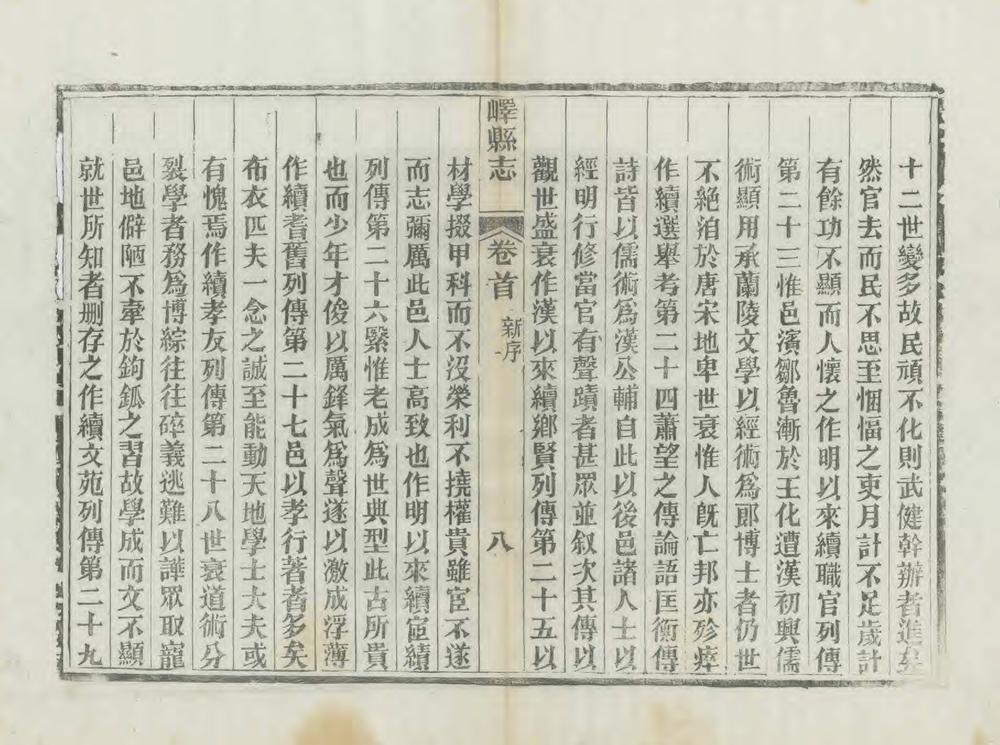 十二世變多故民頑不化則武健幹辦者進矣
然官去而民不思至悃愊之吏月計不足歲計
有餘功不顯而人懷之作明以來續職官列傳
第二十三惟邑濱鄒魯漸於王化遭漢初興儒
術顯用承蘭陵文學以經術爲郎博士者仍世
不絶洎於唐宋地卑世衰惟人旣亡邦亦殄瘁
作續選舉考第二十四蕭望之傳論語匡衡傳
詩皆以儒術爲漢公輔自此以後邑諸人士以
經明行修當官有聲蹟者甚眾並叙次其傳以
觀世盛衰作漢以來續鄉賢列傳第二十五以
嶧縣志 卷首 新序 八
材學掇甲科而不没榮利不撓權貴雖宦不遂
而志彌厲此邑人士高致也作明以來續宦績
列傳第二十六緊惟老成爲世典型此古所貴
也而少年才俊以厲鋒氣爲聲遂以激成浮薄
作續耆舊列傳第二十七邑以孝行著者多矣
布衣匹夫一念之誠至能動天地學士大夫或
有愧焉作續孝友列傳第二十八世衰道術分
裂學者務爲博綜往往碎義逃難以譁眾取寵
邑地僻陋不牽於鉤釽之習故學成而文不顯
就世所知者刪存之作續文苑列傳第二十九